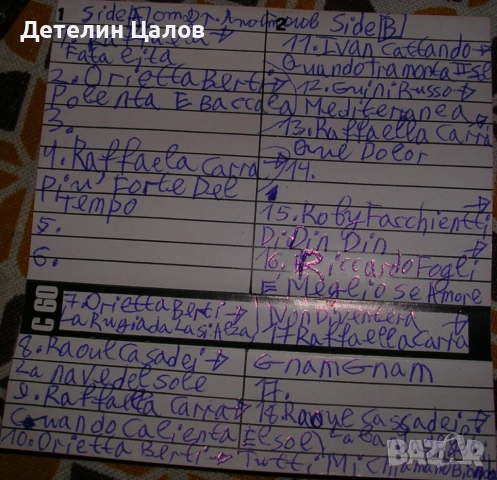 Детелин Цалов
1 Side A
2 Side B
Fata ejta
2. Orietta Berti →
Polenta E Baccala
3.
4. Raffaela Carra →
Piu' Forte Del
Tempo
5.
6.
C 60
7. Orietta Berti →
La Rugiada La si Alza
8. Raoul Casadei →
La nave del sole
9. Raffaella Carra →
Cuando Calienta El Sol
10. Orietta Berti →
Tutti Mi Chiamano Bionda
11. Ivan Cattando →
Quando Tramonta Il Sol
12. Guini Russo →
Mediteranea
13. Raffaella Carra
Que Dolor
14.
15. Roby Facchientti
Di Din Din
16. Riccardo Fogli
E' Meglio se Amore
Non Diventera
17. Raffaella Carra
Gnam Gnam
17.
18. Raoul Cassadei
BAZAR